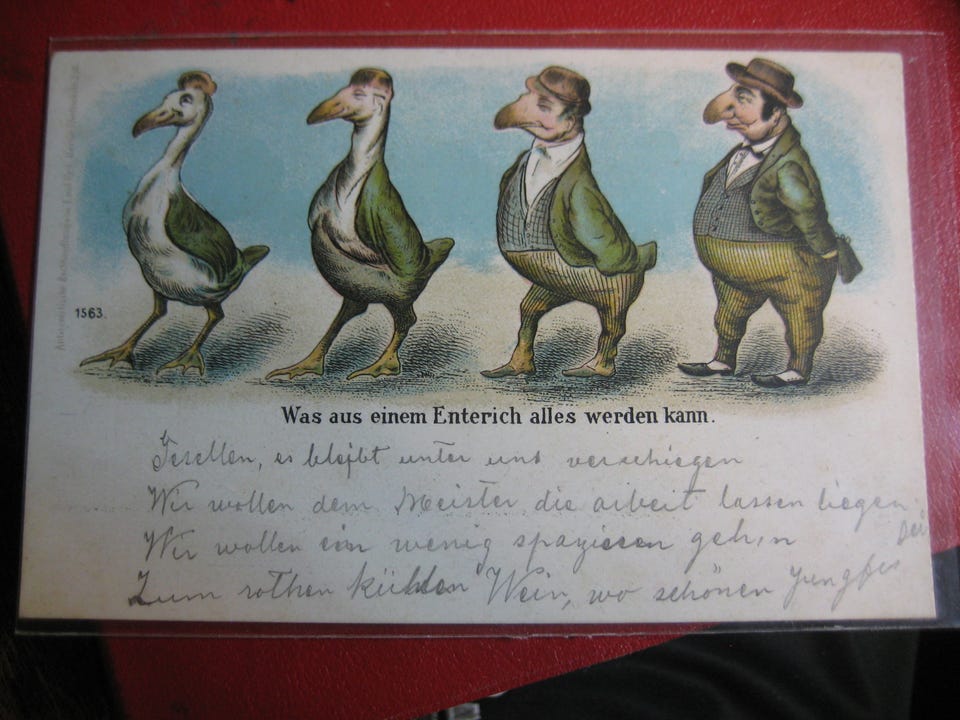 1563.
Was aus einem Enterich alles werden kann.
Gesellen, es bleibt unter uns verschiegen
Wir wollen dem Meister die arbeit lassen liegen
Wir wollen ein wenig spazieren gehn
Zum rothen kühlen Wein, wo schönen